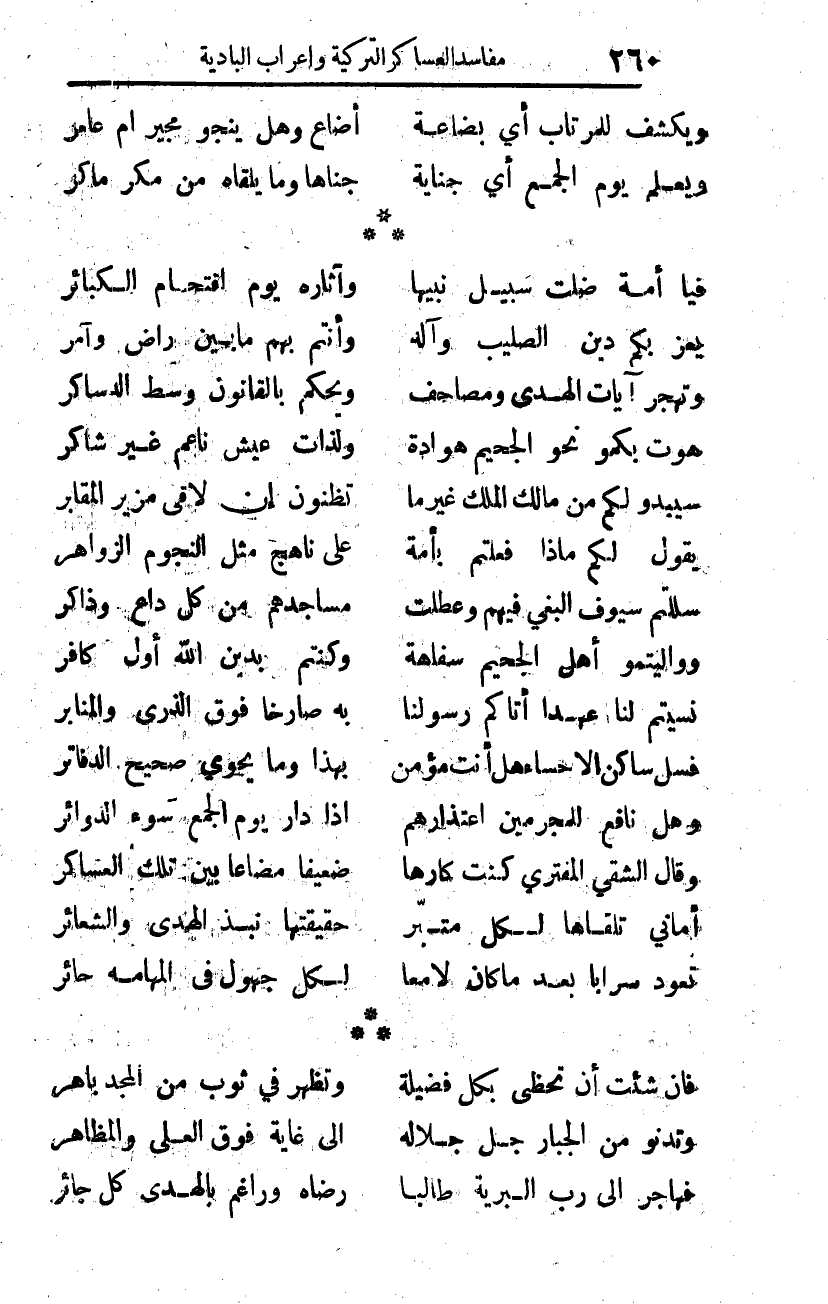 ٢٦٠ مفاسد العساكر التركية واعراب البادية
ويكشف للمرتاب أي بضاعة أضاع وهل ينجو مجير ام عامر
ويعلم يوم الجمع أي جناية جناها وما يلقاه من مكر ماكر
***
فيا أمة ضلت سبيل نبيها وآثاره يوم اقتحام الكبائر
يعز بكم دين الصليب وآله وأنتم بهم مابين راض وآمر
وتهجر آيات الهدى ومصاحف ويحكم بالقانون وسط الدساكر
هوت بكمو نحو الجحيم هوادة ولذات عيش ناعم غير شاكر
سيبدو لكم من مالك الملك غير ما تظنون إن لاقى مزير المقابر
يقول لكم ماذا فعلتم بأمة على ناهج مثل النجوم الزواهر
سللتم سيوف البغي فيهم وعطلت مساجدهم من كل داع وذاكر
وواليتمو أهل الجحيم سفاهة وكنتم بدين الله أول كافر
نسيتم لنا عهدا أتاكم رسولنا به صارخا فوق الذرى والمنابر
فسل ساكن الاحساء هل أنت مؤمن بهذا وما يحوي صحيح الدفاتر
وهل نافع للمجرمين اعتذارهم اذا دار يوم الجمع سوء الدوائر
وقال الشقي المفتري كنت كارها ضعيفا مضاعا بين تلك العساكر
أماني تلقاها لكل متبّر حقيقتها نبذ الهدى والشعائر
تعود سرابا بعد ماكان لامعا لكل جهول في المهامه حائر
***
فان شئت أن تحظى بكل فضيلة وتظهر في ثوب من المجد باهر
وتدنو من الجبار جل جلاله الى غاية فوق العلى والمظاهر
فهاجر الى رب البرية طالبا رضاه وراغم بالهدى كل جائر